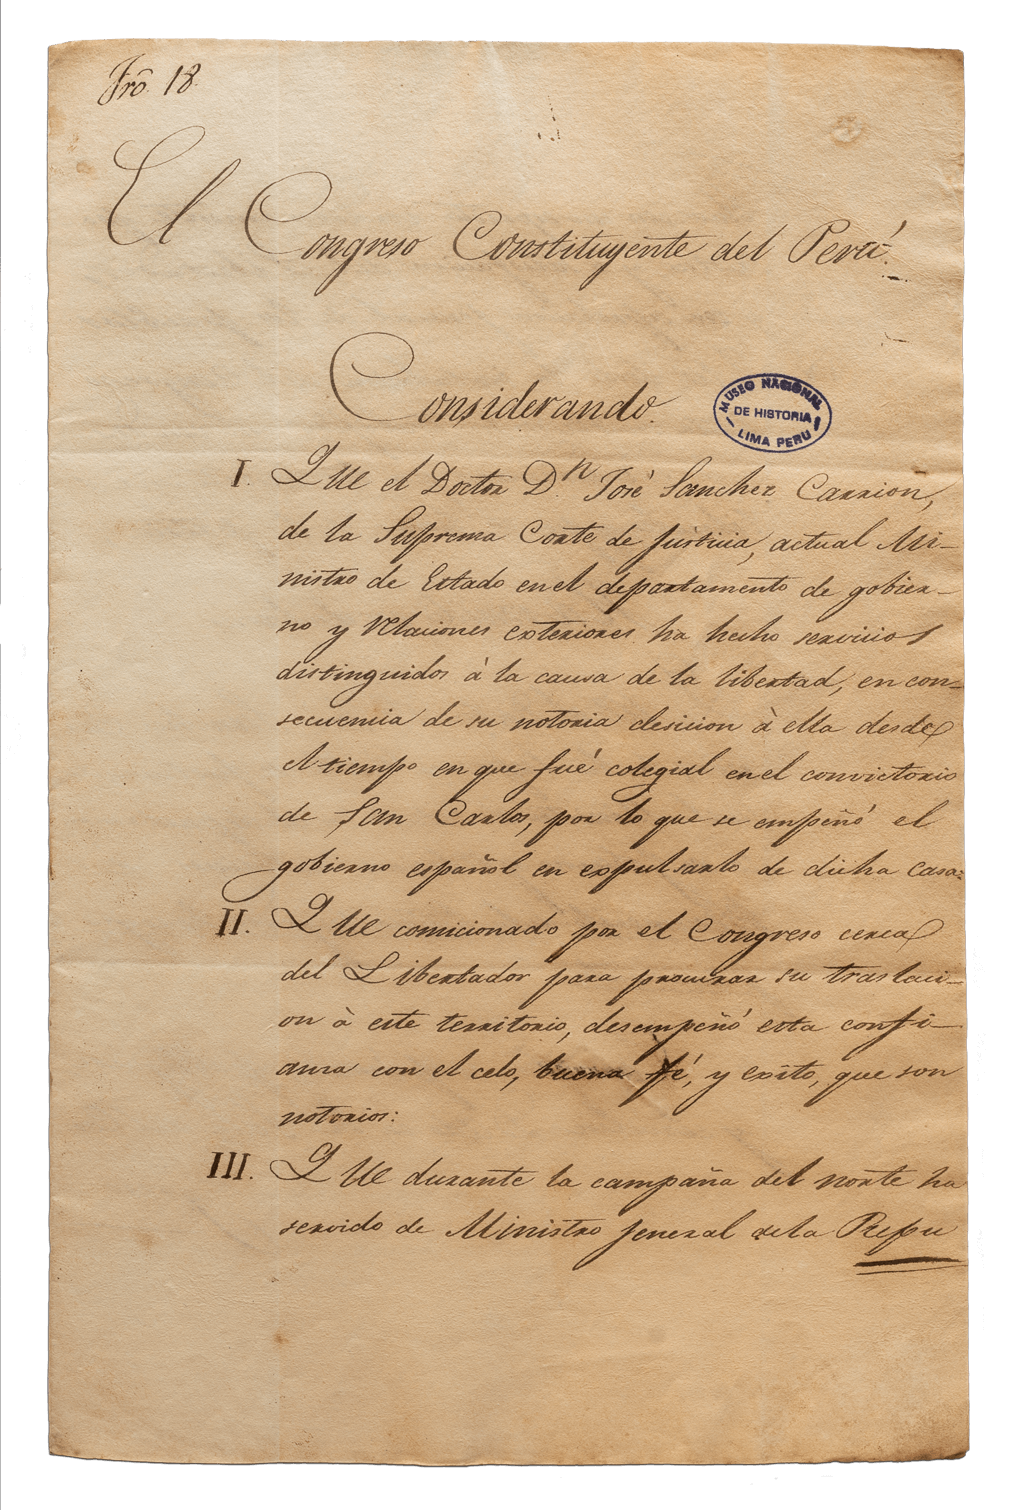 Fro. 18.
El Congreso Constituyente del Perú.
Considerando.
MUSEO NACIONAL
DE HISTORIA
LIMA PERU
I. Que el Doctor D.n José Sanchez Carrion,
de la Suprema Corte de Justicia, actual Mi-
nistro de Estado en el departamento de gobier-
no y relaciones exteriores ha hecho servicios
distinguidos à la causa de la libertad, en con-
secuencia de su notoria desicion à ella desde
el tiempo en que fué colegial en el convictorio
de San Carlos, por lo que se empeñó el
gobierno español en expulsarlo de dicha casa:
II. Que comicionado por el Congreso cerca
del Libertador para procurar su traslaci-
on à este territorio, desempeñó esta confi-
anza con el celo, buena fé, y exito, que son
notorios:
III. Que durante la campaña del norte ha
servido de Ministro jeneral de la Repu